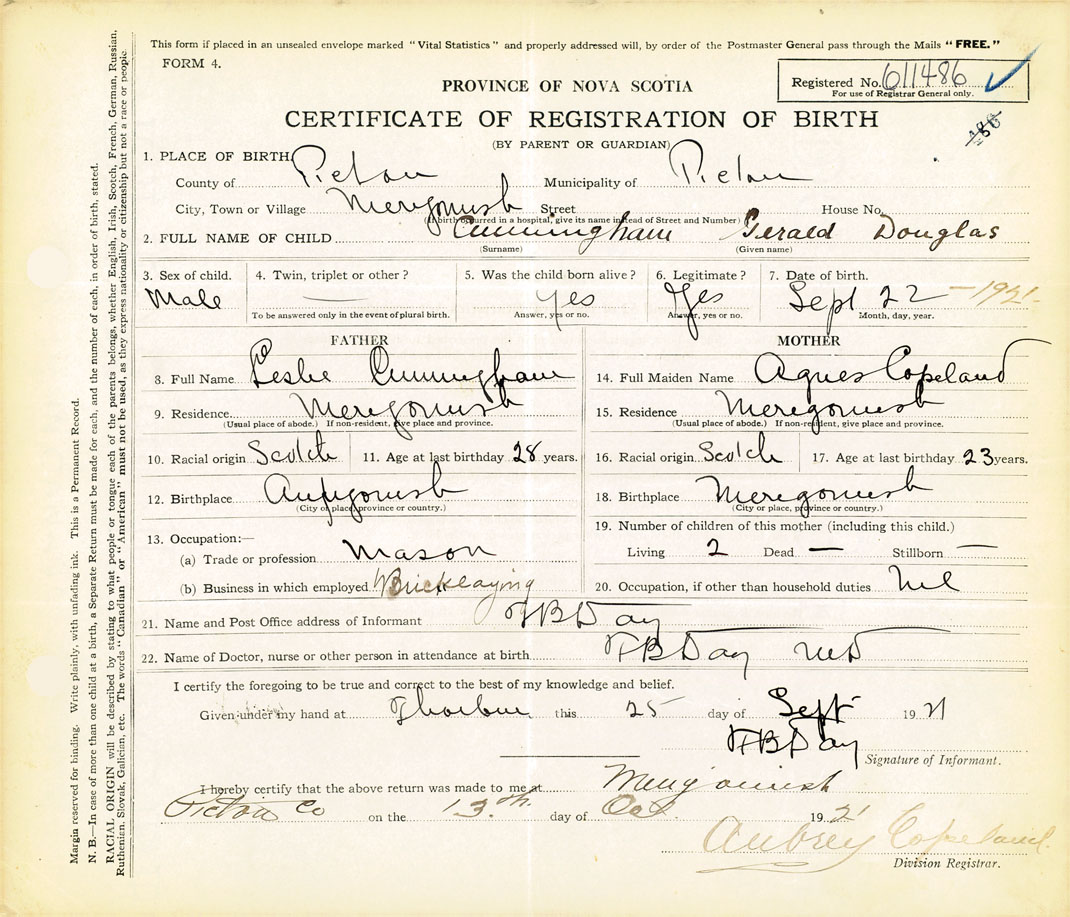 This form if placed in an unsealed envelope marked "Vital Statistics" and properly addressed will, by order of the Postmaster General pass through the Mails "FREE."
FORM 4.
Registered No. 611486
For use of Registrar General only.
PROVINCE OF NOVA SCOTIA
CERTIFICATE OF REGISTRATION OF BIRTH
(BY PARENT OR GUARDIAN)
1. PLACE OF BIRTH
County of Pictou Municipality of Pictou
City, Town or Village Merigomish Street House No.
(If birth occurred in a hospital, give its name instead of Street and Number)
2. FULL NAME OF CHILD Cunningham Gerald Douglas
(Surname) (Given name)
3. Sex of child. 4. Twin, triplet or other? 5. Was the child born alive? 6. Legitimate? 7. Date of birth.
Male — Yes Yes Sept 22 - 1921.
To be answered only in the event of plural birth. Answer, yes or no. Answer, yes or no. Month, day, year.
FATHER MOTHER
8. Full Name Leslie Cunningham 14. Full Maiden Name Agnes Copeland
9. Residence Merigomish 15. Residence Merigomish
(Usual place of abode.) If non-resident, give place and province. (Usual place of abode.) If non-resident, give place and province.
10. Racial origin Scotch 11. Age at last birthday 28 years. 16. Racial origin Scotch 17. Age at last birthday 23 years.
12. Birthplace Antigonish 18. Birthplace Merigomish
(City or place, province or country.) (City or place, province or country.)
13. Occupation:— 19. Number of children of this mother (including this child.)
(a) Trade or profession Mason Living 2 Dead — Stillborn —
(b) Business in which employed Bricklaying 20. Occupation, if other than household duties Nil
21. Name and Post Office address of Informant F B Day
22. Name of Doctor, nurse or other person in attendance at birth F B Day MD
I certify the foregoing to be true and correct to the best of my knowledge and belief.
Given under my hand at Thorburn this 25 day of Sept 1921
F B Day
Signature of Informant.
I hereby certify that the above return was made to me at Merigomish
Pictou Co on the 13th. day of Oct. 1921
Aubrey Copeland.
Division Registrar.
Margin reserved for binding. Write plainly, with unfading ink. This is a Permanent Record.
N. B.—In case of more than one child at a birth, a Separate Return must be made for each, and the number of each, in order of birth, stated.
RACIAL ORIGIN will be described by stating to what people or tongue each of the parents belongs, whether English, Irish, Scotch, French, German, Russian,
Ruthenian, Slovak, Galician, etc. The words "Canadian" or "American" must not be used, as they express nationality or citizenship but not a race or people.